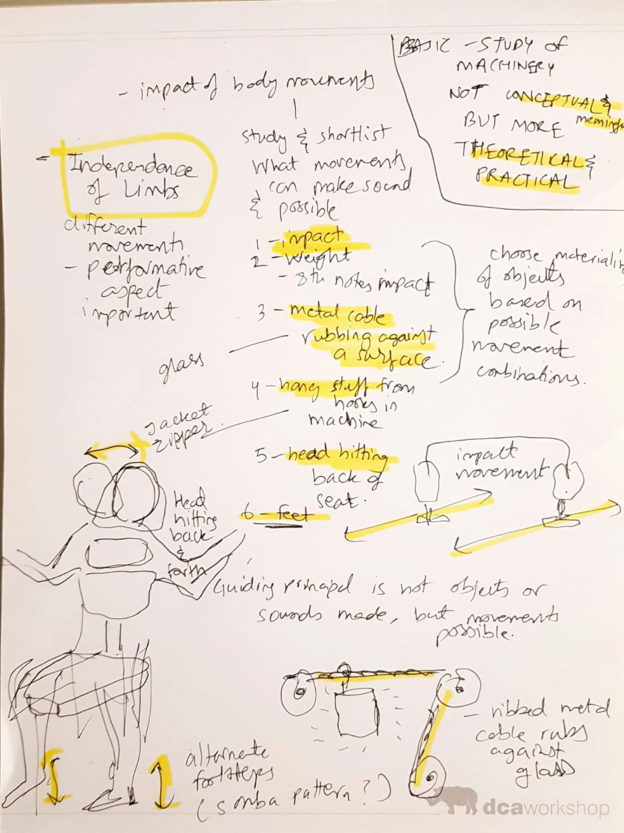 BASIC - STUDY OF
MACHINERY
NOT CONCEPTUAL &
meaningful
BUT MORE
THEORETICAL &
PRACTICAL
- impact of body movements
study & shortlist
what movements
can make sound
& possible
1 - impact
2 - weight
- 8th notes impact
3 - metal cable
rubbing against
a surface.
4 - hang stuff from
hooks in
machine
5 - head hitting
back of
seat.
6 - feet
= Independence
of Limbs
different
movements
- performative
aspect
important
glass
jacket
zipper.
choose materiality
of objects
based on
possible
movement
combinations.
impact
movement
Head
hitting
back
&
forth
Guiding principal is not objects or
sounds made, but movements
possible.
alternate
footsteps
(samba pattern?)
- ribbed metal
cable rubs
against
glass
dcaworkshop